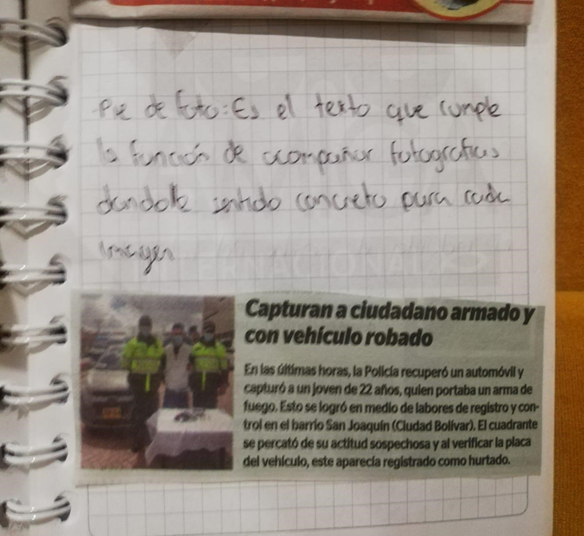 Pie de foto: Es el texto que cumple
la función de acompañar fotografias
dandole sentido concreto para cada
imagen
Capturan a ciudadano armado y
con vehículo robado
En las últimas horas, la Policía recuperó un automóvil y
capturó a un joven de 22 años, quien portaba un arma de
fuego. Esto se logró en medio de labores de registro y con-
trol en el barrio San Joaquín (Ciudad Bolívar). El cuadrante
se percató de su actitud sospechosa y al verificar la placa
del vehículo, este aparecía registrado como hurtado.